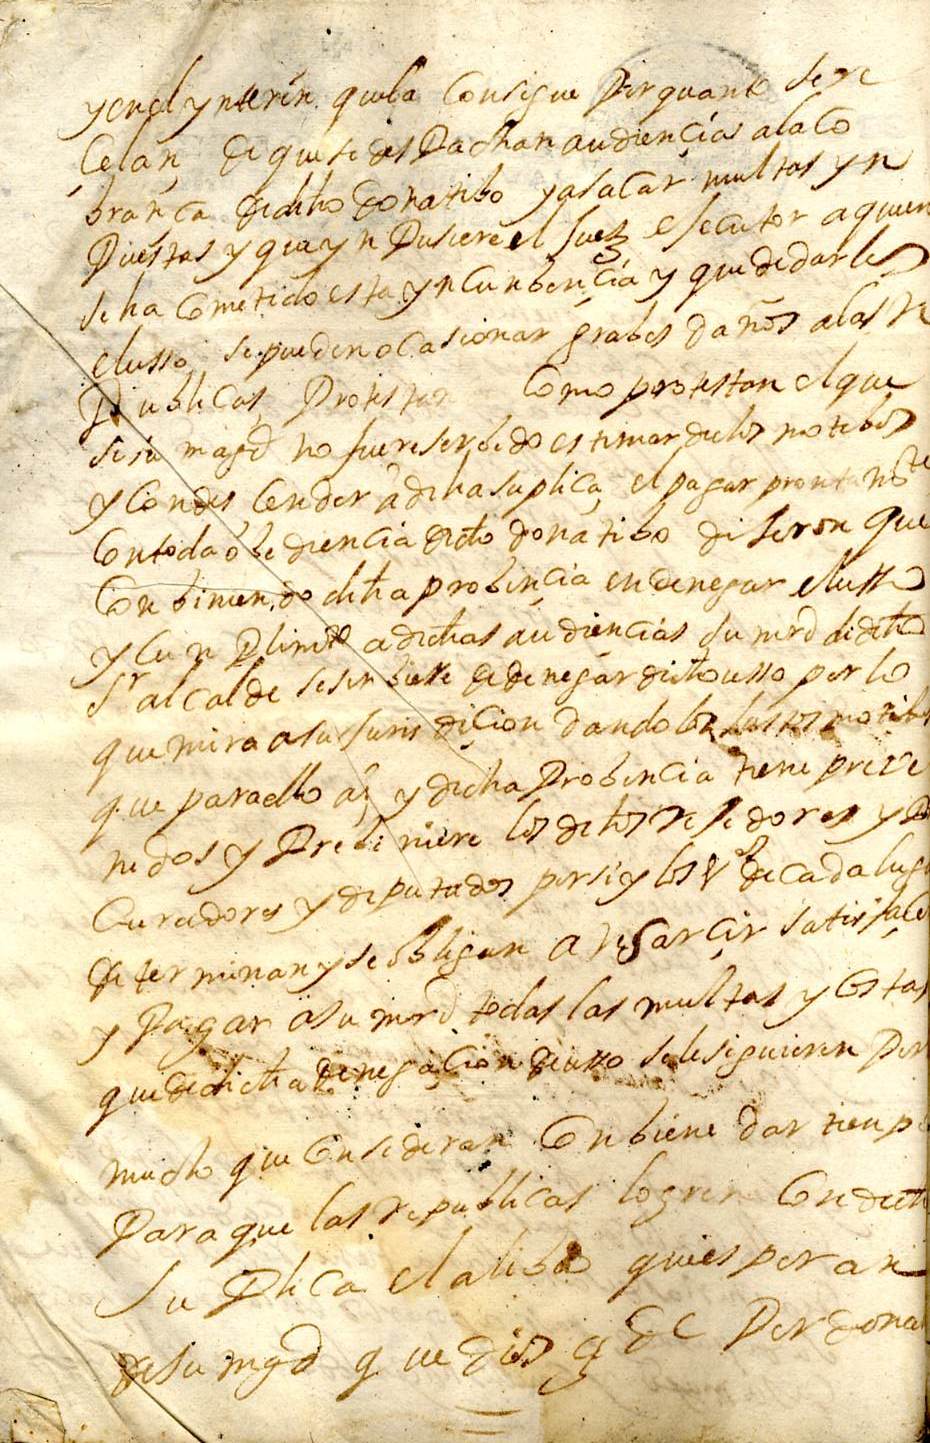 y en el ynterin que la Consigue Por quanto se re
Celan de que se des Pachan audiencias a la Co
brança de dho donatibo y a sacar multas yn
Puestas y que yn Pusiere el Juez esecutor a quien
se ha Cometido esta yncunbencia y que de darles
el usso se pueden ocasionar grabes daños a las Re
Publicas Protestan Como protestan el que
si su magd no fuere serbido estimar dichos motibos
y Condes Cender a dicha suplica el pagar prontamte
Con toda obediencia dicho donatibo diseron que
Conbiniendo dicha probincia en denegar el usso
y Cun Plimto a dichas audiencias su mrd de dicho
Sr alcalde se sirbiese de denegar dicho usso por lo
que mira a su Jurisdiçion dando los justos motibos
que para ello ay y dicha Probincia tiene preve
nidos y Prebiniere los dichos Rejidores y Pro
Curadores y diputados por si y los Vos de cada lugar
determinan y se obligan a resarçir satisfaçer
y Pagar a su mrd todas las multas y Costas
que de dicha denegaçion de usso se le siguieren Por
mucho que Consideran Conbiene dar tienpo
Para que las republicas logren Con dicha
Su Plica el alibio que esperan
de su mgd que dios gde Perdona